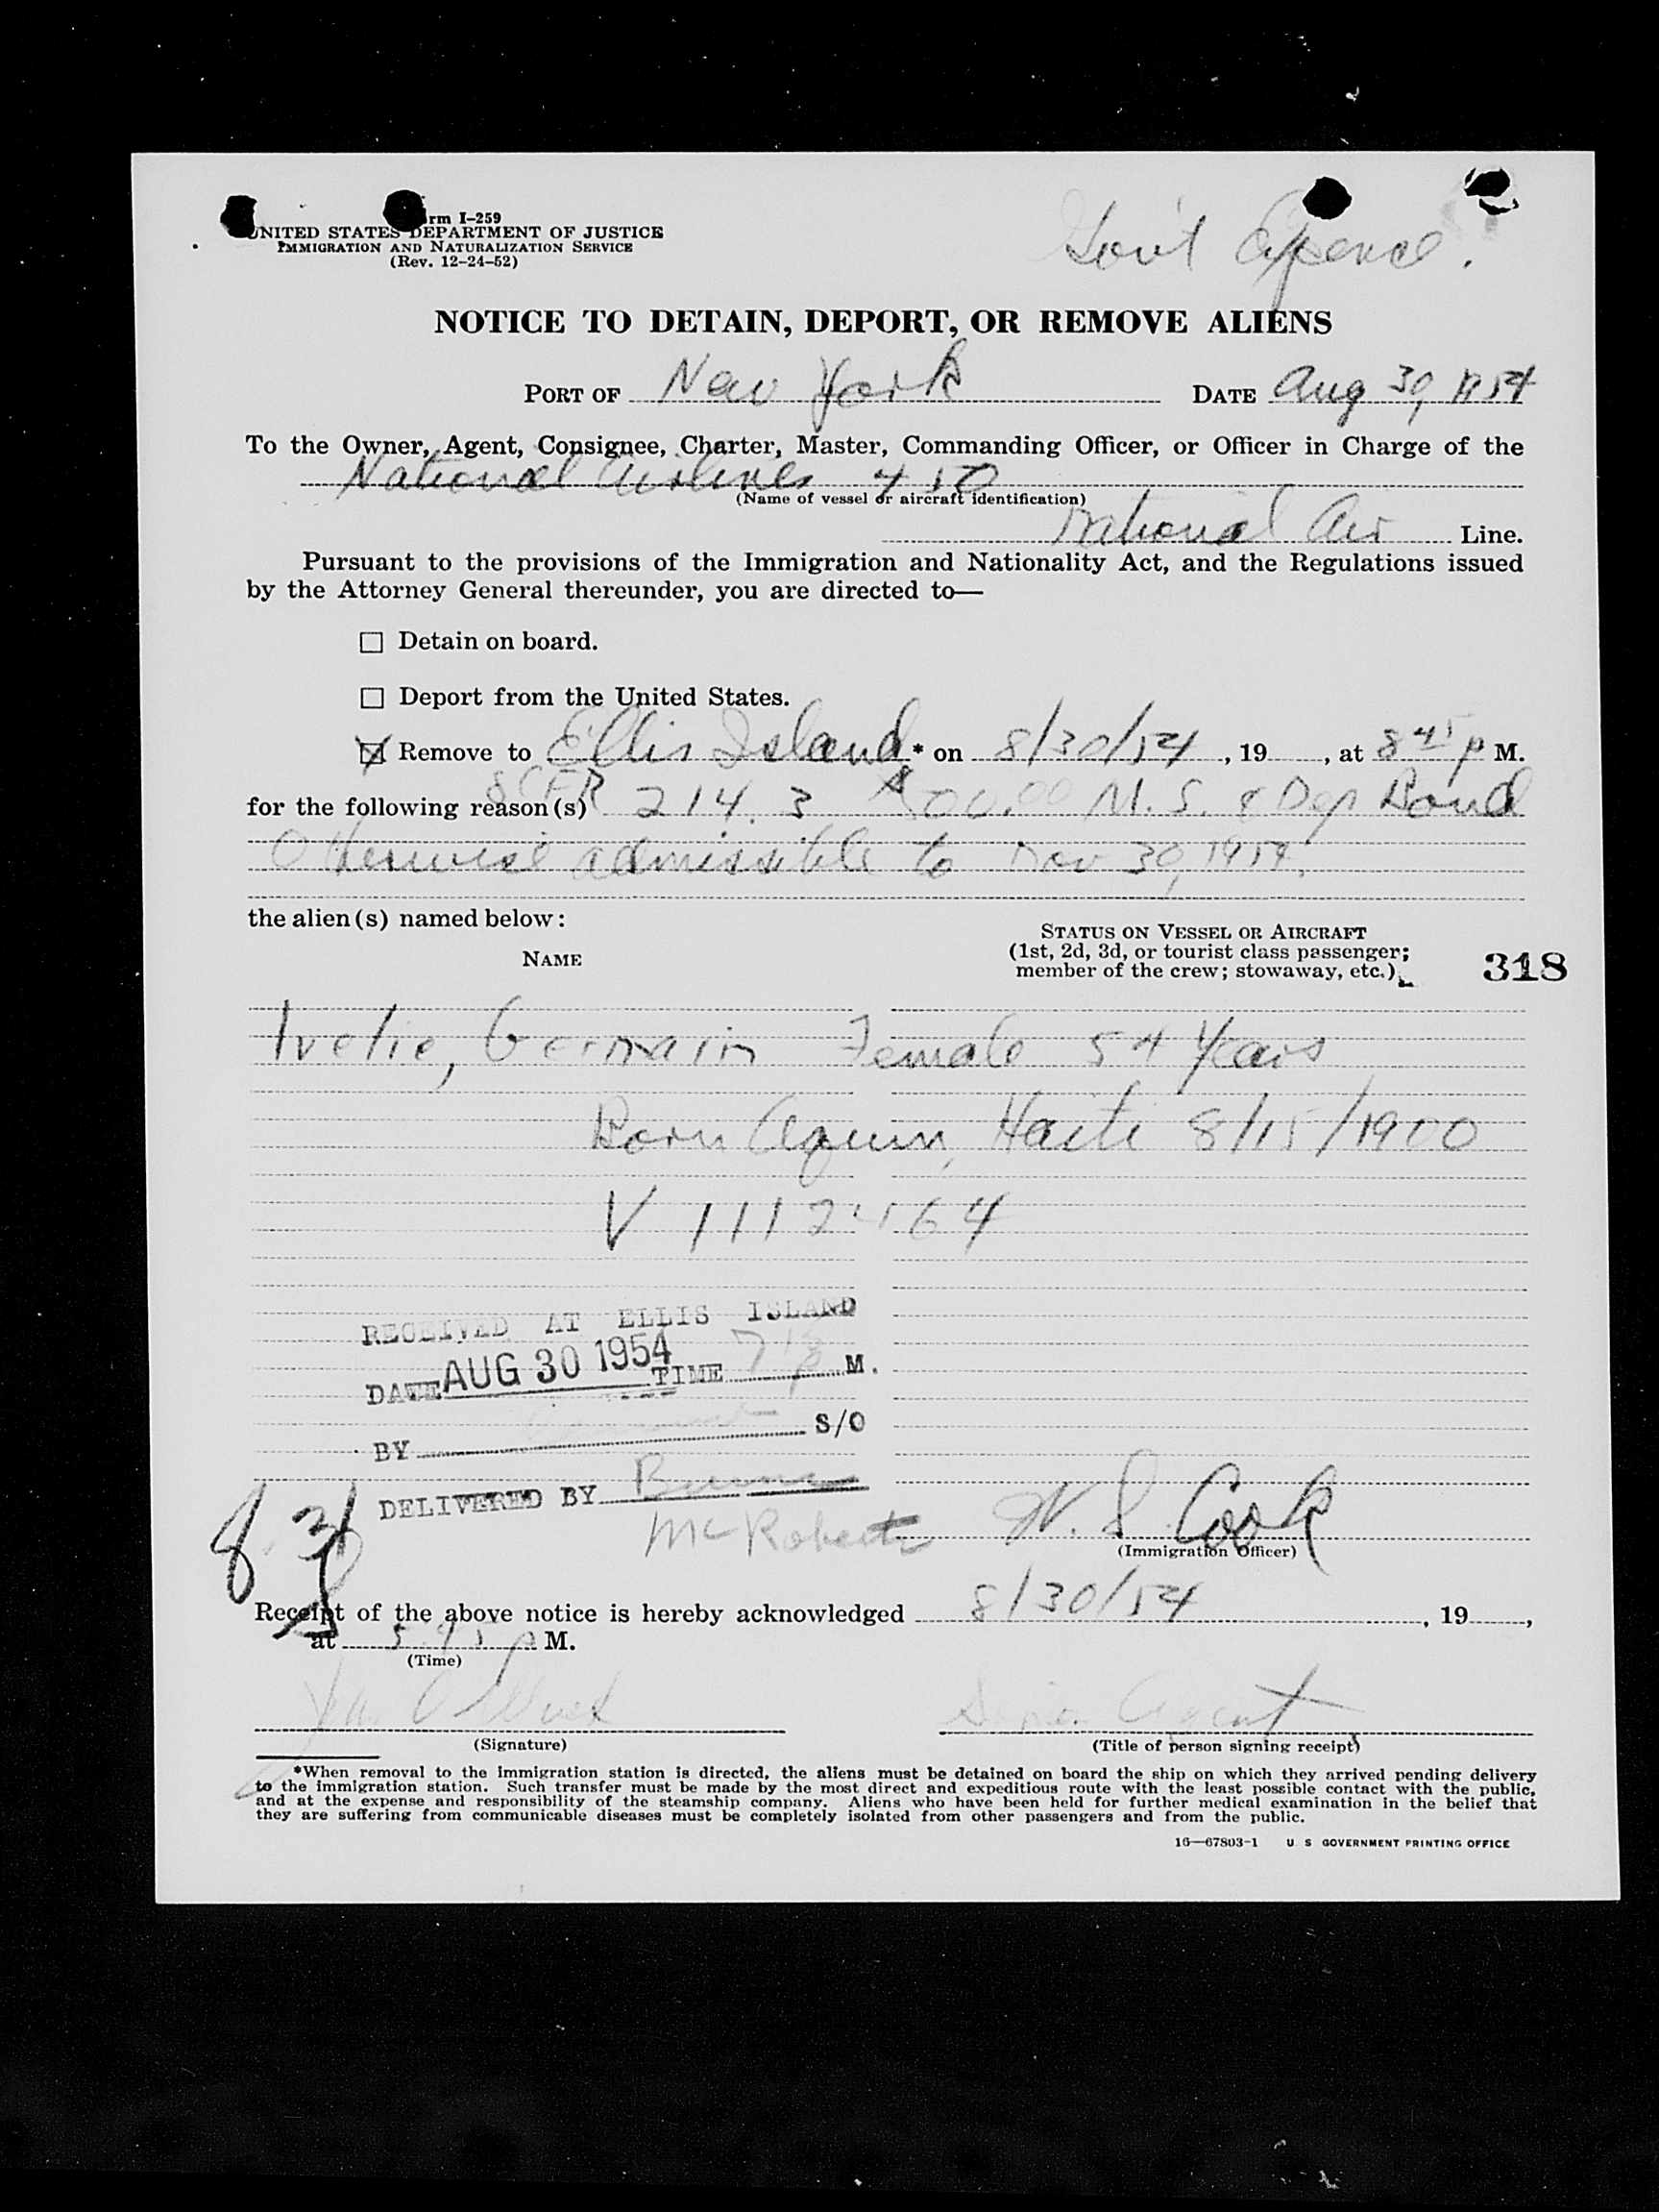 rm I-259
UNITED STATES DEPARTMENT OF JUSTICE
IMMIGRATION AND NATURALIZATION SERVICE
(Rev. 12-24-52)
Gov't Expence.
NOTICE TO DETAIN, DEPORT, OR REMOVE ALIENS
PORT OF New York DATE Aug 30, 1954
To the Owner, Agent, Consignee, Charter, Master, Commanding Officer, or Officer in Charge of the
National Airlines 450
(Name of vessel or aircraft identification)
National Air Line.
Pursuant to the provisions of the Immigration and Nationality Act, and the Regulations issued
by the Attorney General thereunder, you are directed to—
☐ Detain on board.
☐ Deport from the United States.
☒ Remove to Ellis Island * on 8/30/54, 19 , at 8 45 p M.
for the following reason(s) 8 CFR 214.3 00.00 M.S. & Dep Bond
Otherwise admissible to Nov 30, 1954.
the alien(s) named below:
NAME
STATUS ON VESSEL OR AIRCRAFT
(1st, 2d, 3d, or tourist class passenger;
member of the crew; stowaway, etc.)
318
Ivelie, Germain Female 54 Years
Born Aquin, Haiti 8/15/1900
V 1112 164
RECEIVED AT ELLIS ISLAND
DATE AUG 30 1954 TIME 7 M.
BY S/O
DELIVERED BY
McRoberts
W. S. Cook
(Immigration Officer)
Receipt of the above notice is hereby acknowledged 8/30/54, 19 ,
at 5 45 p M.
(Time)
Agent
(Signature)
(Title of person signing receipt)
*When removal to the immigration station is directed, the aliens must be detained on board the ship on which they arrived pending delivery
to the immigration station. Such transfer must be made by the most direct and expeditious route with the least possible contact with the public,
and at the expense and responsibility of the steamship company. Aliens who have been held for further medical examination in the belief that
they are suffering from communicable diseases must be completely isolated from other passengers and from the public.
16—67803-1 U. S. GOVERNMENT PRINTING OFFICE